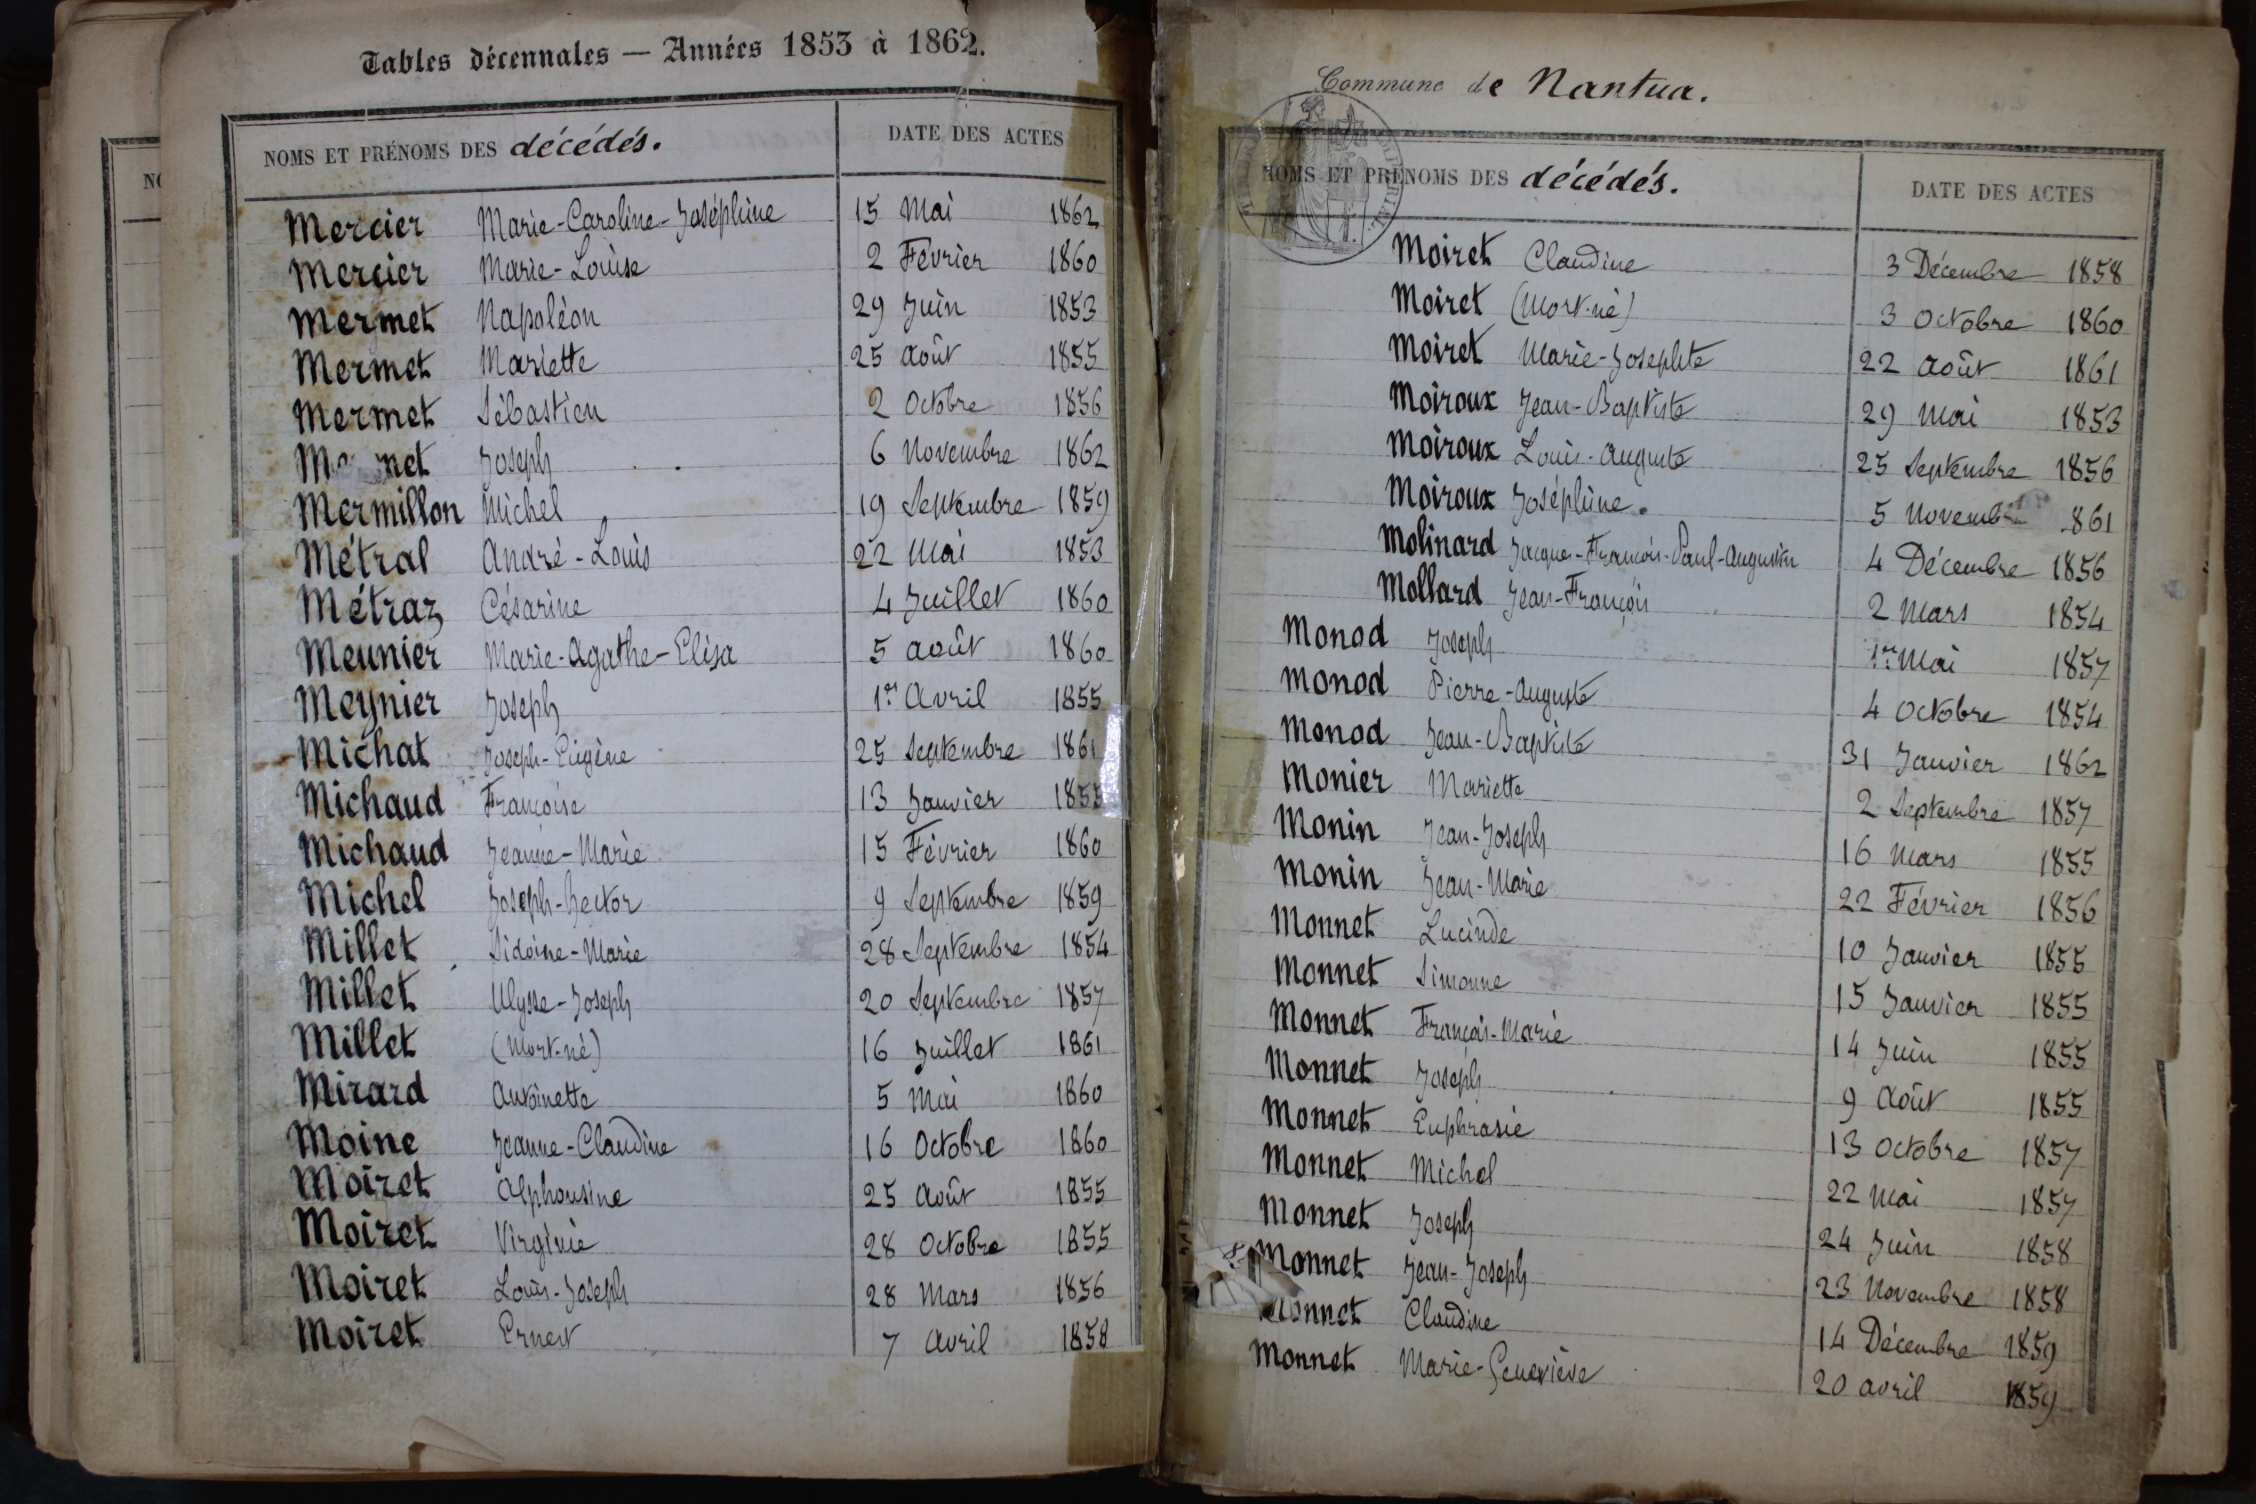 Tables décennales — Années 1853 à 1862.
NOMS ET PRÉNOMS DES décédés. DATE DES ACTES
Mercier Marie-Caroline-Joséphine 15 Mai 1862
Mercier Marie-Louise 2 Février 1860
Mermet Napoléon 29 Juin 1853
Mermet Mariette 25 août 1855
Mermet Sébastien 2 Octobre 1856
Joseph 6 Novembre 1862
Mermillon Michel 19 Septembre 1859
Métral André-Louis 22 Mai 1853
Métraz Césarine 4 Juillet 1860
Meunier Marie-Agathe-Elisa 5 août 1860
Meynier Joseph 1er Avril 1855
Michat Joseph-Eugène 25 Septembre 1861
Michaud Françoise 13 Janvier
Michaud Jeanne-Marie 15 Février 1860
Michel Joseph-hector 9 Septembre 1859
Millet Sidoine-Marie 28 Septembre 1854
Millet Ulysse-Joseph 20 Septembre 1857
Millet (Mort-né) 16 Juillet 1861
Mirard Antoinette 5 Mai 1860
Moine Jeanne-Claudine 16 Octobre 1860
Moiret Alphonsine 25 Août 1855
Moiret Virginie 28 Octobre 1855
Moiret Louis-Joseph 28 Mars 1856
Moiret Ernest 7 Avril 1858
Commune de Nantua.
NOMS ET PRÉNOMS DES décédés. DATE DES ACTES
Moiret Claudine 3 Décembre 1858
Moiret (Mort-né) 3 Octobre 1860
Moiret Marie-Josephte 22 Août 1861
Moiroux Jean-Baptiste 29 Mai 1853
Moiroux Louis-Auguste 25 Septembre 1856
Moiroux Joséphine. 5 Novembre 861
Molinard Jacques-François-Paul-Augustin 4 Décembre 1856
Mollard Jean-François 2 Mars 1854
Monod Joseph 1er Mai 1857
Monod Pierre-Auguste 4 Octobre 1854
Monod Jean-Baptiste 31 Janvier 1862
Monier Mariette 2 Septembre 1857
Monin Jean-Joseph 16 Mars 1855
Monin Jean-Marie 22 Février 1856
Monnet Lucinde 10 Janvier 1855
Monnet Simonne 15 Janvier 1855
Monnet François-Marie 14 Juin 1855
Monnet Joseph 9 Août 1855
Monnet Euphrasie 13 Octobre 1857
Monnet Michel 22 Mai 1857
Monnet Joseph 24 Juin 1858
Monnet Jean-Joseph 23 Novembre 1858
Monnet Claudine 14 Décembre 1859
Monnet Marie-Geneviève 20 avril 1859